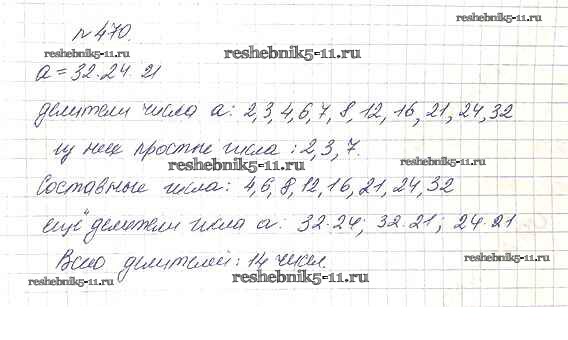 №470.
reshebnik5-11.ru
reshebnik5-11.ru
reshebnik5-11.ru
a = 32·24·21
делители числа a: 2,3,4,6,7,8,12,16,21,24,32
из них простые числа: 2,3,7.
reshebnik5-11.ru
reshebnik5-11.ru
Составные числа: 4,6,8,12,16,21,24,32
ещё делители числа a: 32·24; 32·21; 24·21
Всего делителей: 14 чисел.
reshebnik5-11.ru
reshebnik5-11.ru
reshebnik5-11.ru